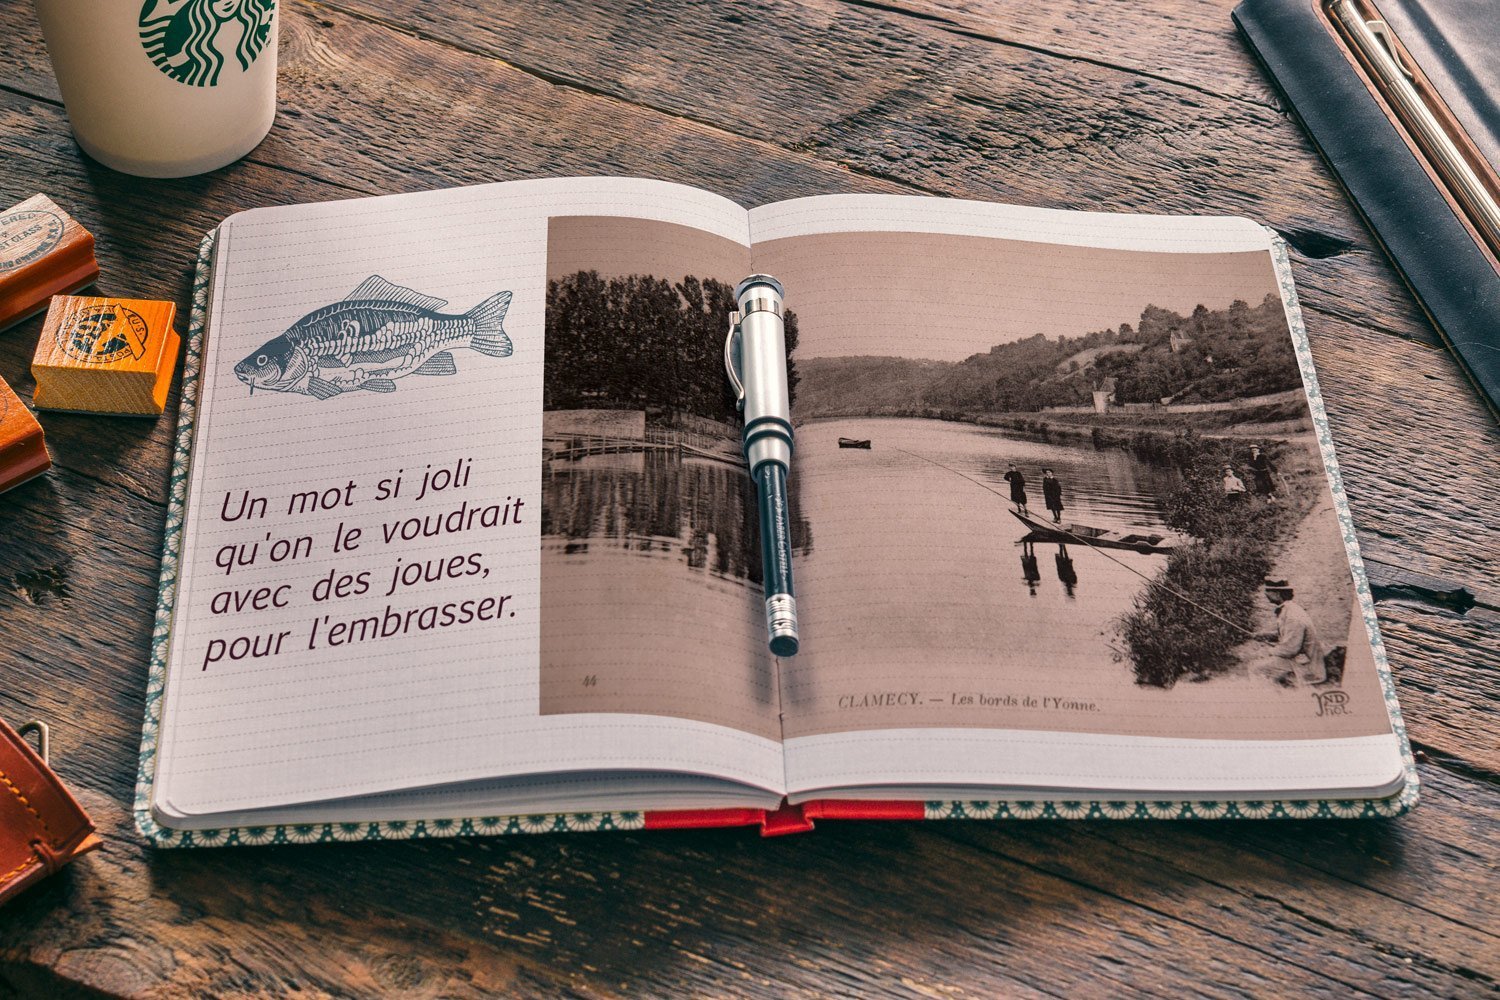 Un mot si joli
qu'on le voudrait
avec des joues,
pour l'embrasser.
44
CLAMECY. — Les bords de l'Yonne.
ND
Phot.
ERED
ST GLASS
U.S.